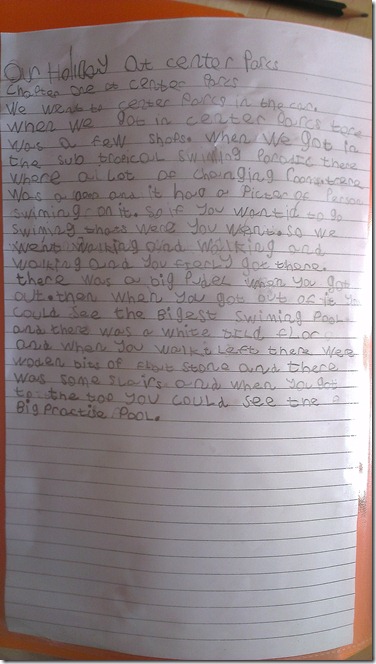 Our Holiday At center Parcs
Chapter one at center Parcs
We went to center Parcs in the car.
When we got in center Parcs there
was a few shops. When we got in
the sub tropical swiming Paradic there
where a lot of changing rooms. there
was a and it had a Picter of Person
swiming on it. so if you wantid to go
swiming thats were you went. so we
went walking and walking and
walking and you finerly got there.
there was a big Pudel when you got
out. then when you got out of it you
could see the Bigest swiming Pool
and there was a white flor
and when you walkt left there were
woden bits of flat stone and there
was some stairs and when you got
to the top you could see the
Big Practise Pool.